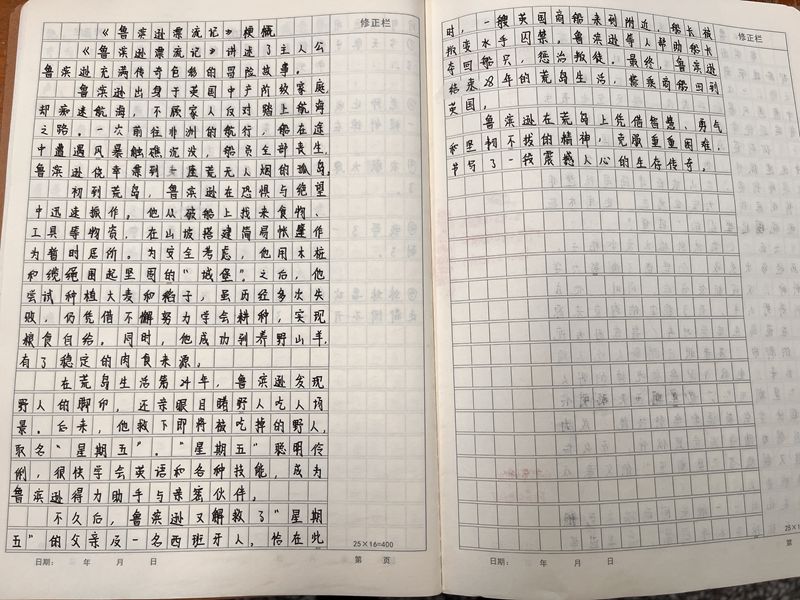 《鲁滨逊漂流记》梗概
《鲁滨逊漂流记》讲述了主人公
鲁滨逊充满传奇色彩的冒险故事。
鲁滨逊出身于英国中产阶级家庭,
却痴迷航海,不顾家人反对踏上航海
之路。一次前往非洲的航行,船在途
中遭遇风暴触礁沉没,船员全部丧生,
鲁滨逊侥幸漂到一座荒无人烟的孤岛。
初到荒岛,鲁滨逊在恐惧与绝望
中迅速振作。他从破船上找来食物、
工具等物资,在山坡搭建简易帐篷作
为暂时居所。为安全考虑,他用木桩
和缆绳围起坚固的“城堡”。之后,他
尝试种植大麦和稻子,虽历经多次失
败,仍凭借不懈努力学会耕种,实现
粮食自给。同时,他成功驯养野山羊,
有了稳定的肉食来源。
在荒岛生活第24年,鲁滨逊发现
野人的脚印,还亲眼目睹野人吃人场
景。后来,他救下即将被吃掉的野人,
取名“星期五”。“星期五”聪明伶
俐,很快学会英语和各种技能,成为
鲁滨逊得力助手与亲密伙伴。
不久后,鲁滨逊又解救了“星期
五”的父亲及一名西班牙人,恰在此
时,一艘英国商船来到附近,船长被
叛变水手囚禁。鲁滨逊等人帮助船长
夺回船只,惩治叛徒。最终,鲁滨逊
结束28年的荒岛生活,搭乘商船回到
英国。
鲁滨逊在荒岛上凭借智慧、勇气
和坚韧不拔的精神,克服重重困难,
书写了一段震撼人心的生存传奇。
修正栏
修正栏
25×16=400
日期: 年 月 日
第 页
日期: 年 月 日
第